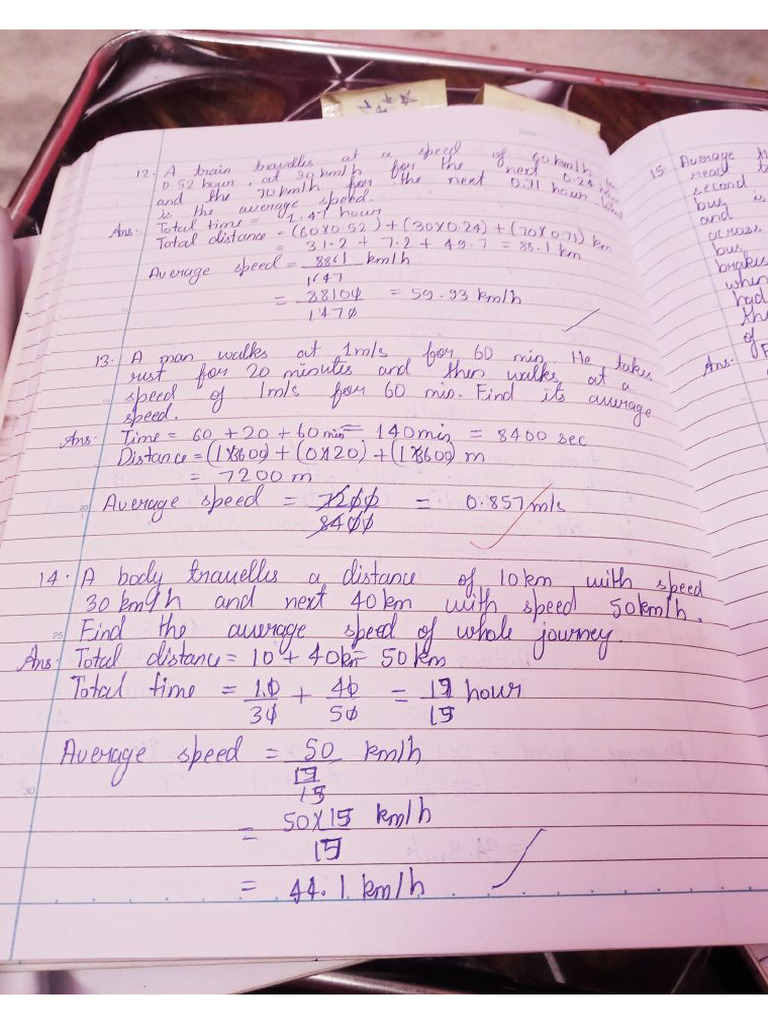 12. A train travelles at a speed of 60 km/h for
0.52 hour, at 30 km/h for the next 0.24
and the 70 km/h for the next 0.71 hour.
is the average speed.
Ans- Total time = 1.47 hour
Total distance = (60x0.52)+(30x0.24)+(70x0.71) km
= 31.2 + 7.2 + 49.7 = 88.1 km
Average speed = 881/147 km/h
= 88100/1470 = 59.93 km/h
13. A man walks at 1m/s for 60 min. He takes
rest for 20 minutes and then walks at a
speed of 1m/s for 60 min. Find its average
speed.
Ans- Time = 60 + 20 + 60 min = 140 min = 8400 sec
Distance = (1x3600) + (0x20) + (1x3600) m
= 7200 m
20
Average speed = 7200/8400 = 0.857 m/s
14. A body travelles a distance of 10 km with speed
30 km/h and next 40 km with speed 50 km/h.
25
Find the average speed of whole journey.
Ans- Total distance = 10 + 40 km = 50 km
Total time = 10/30 + 40/50 = 17/15 hour
Average speed = 50/17/15 km/h
30
= 50x15/17 km/h
= 44.1 km/h
15. Average
second
bus is
and
across
bus.
brakes
when
had
of
Ans-